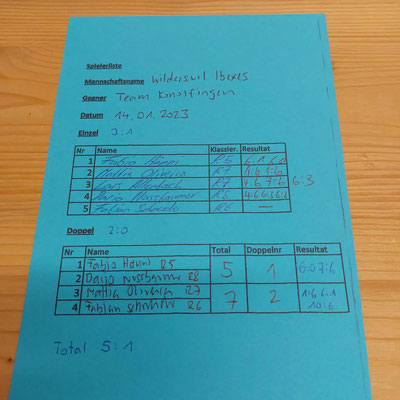 Spielerliste
Mannschaftsname Wilderswil Ibexes
Gegner Team Konolfingen
Datum 14.01.2023
Einzel 3:1
Nr Name Klassier. Resultat
1 Fabio R6 6:1 6:0
2 Mattia Oliveira R7 1:6
3 Lars R7 4:6 7:6 6:3
4 Dario Nussbaumer R8 4:6 6:3 6:2
5 Fabian —
Doppel 2:0
Nr Name Total Doppelnr Resultat
1 Fabio R5 5 1 6:0 7:6
2 Dario Nussbaumer R8
3 Mattia Oliveira R7 7 2 1:6 6:1
4 Fabian R6 10:6
Total 5:1